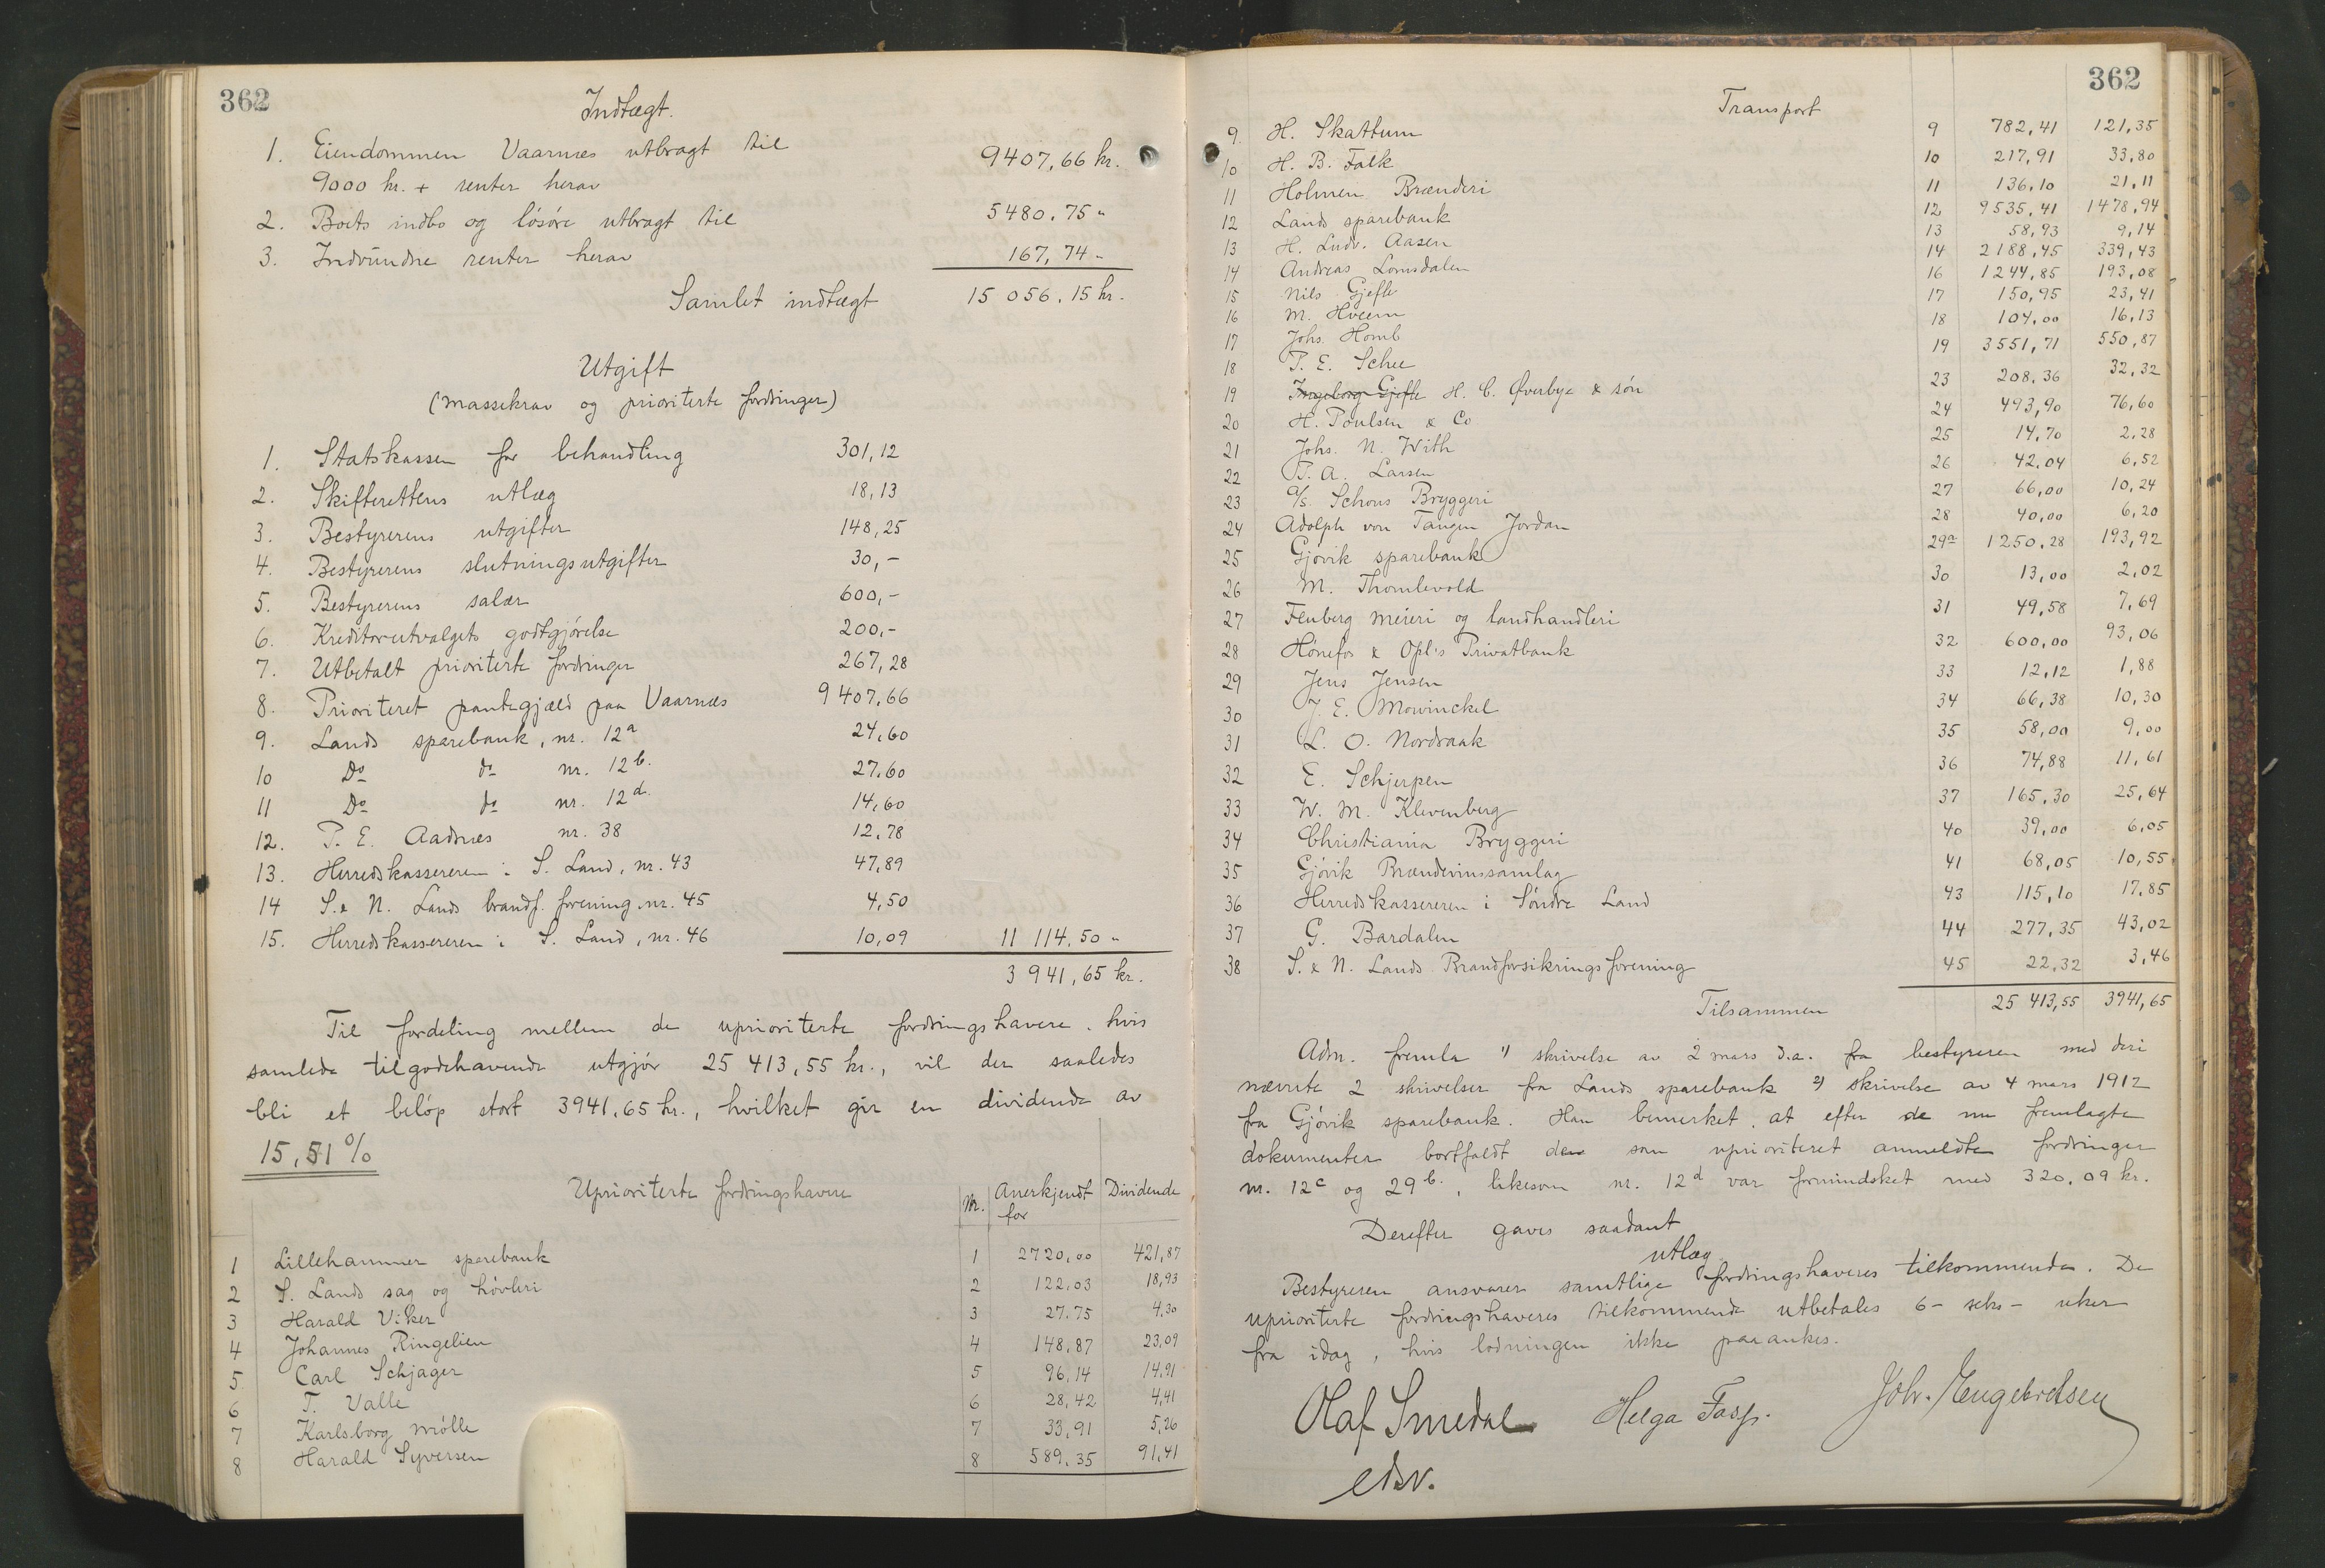 362
Indtægt.
1. Eiendommen Vaarnæs utbragt til
9000 kr. + renter herav 9407,66 kr.
2. Boets indbo og løsøre utbragt til 5480,75 "
3. Indvundne renter herav 167,74 "
Samlet indtægt 15 056,15 kr.
Utgift
(massekrav og prioriterte fordringer)
1. Statskassen for behandling 301,12
2. Skifterettens utlæg 18,13
3. Bestyrerens utgifter 148,25
4. Bestyrerens slutningsutgifter 30,-
5. Bestyrerens salær 600,-
6. Kreditorutvalgets godtgjørelse 200,-
7. Utbetalt prioriterte fordringer 267,28
8. Prioritert pantegjæld paa Vaarnæs 9407,66
9. Lands sparebank, nr. 12a 24,60
10 Do do nr. 12b. 27,60
11 Do do nr. 12d. 14,60
12. P. E. Aadnæs nr. 38 12,78
13. Herredskassereren i S. Land, nr. 43 47,89
14 S. & N. Lands brandf. forening, nr. 45 4,50
15. Herredskassereren i S. Land, nr. 46 10,09 11 114,50 "
3 941,65 kr.
Til fordeling mellem de uprioriterte fordringshavere, hvis
samlede tilgodehavende utgjør 25 413,55 kr., vil der saaledes
bli et beløp stort 3941,65 kr., hvilket gir en dividende av
15,51 %
Uprioriterte fordringshavere Nr. Anerkjendt for Dividende
1 Lillehammer sparebank 1 2720,00 421,87
2 S. Lands sag og høvleri 2 122,03 18,93
3 Harald Viker 3 27,75 4,30
4 Johannes Ringelien 4 148,87 23,09
5 Carl Schjager 5 96,14 14,91
6 T. Valle 6 28,42 4,41
7 Karlsborg mølle 7 33,91 5,26
8 Harald Syversen 8 589,35 91,41
362
Transport
9 H. Skattum 9 782,41 121,35
10 H. B. Falk 10 217,91 33,80
11 Holmen Brænderi 11 136,10 21,11
12 Lands sparebank 12 9535,41 1478,94
13 H. Ludv. Aasen 13 58,93 9,14
14 Andreas Lomsdalen 14 2188,45 339,43
15 Nils Gjefle 16 1244,85 193,08
16 M. Hveem 17 150,95 23,41
17 Johs. Homb 18 104,00 16,13
18 P. E. Schee 19 3551,71 550,87
19 Ingeborg Gjefle H. C. Øverbye & søn 23 208,36 32,32
20 H. Poulsen & Co 24 493,90 76,60
21 Johs. N. With 25 14,70 2,28
22 P. A. Larsen 26 42,04 6,52
23 A/S. Schous Bryggeri 27 66,00 10,24
24 Adolph von Tangen Jordan 28 40,00 6,20
25 Gjøvik sparebank 29a 1250,28 193,92
26 M. Thomlevold 30 13,00 2,02
27 Fluberg meieri og landhandleri 31 49,58 7,69
28 Hønefos & Opl's Privatbank 32 600,00 93,06
29 Jens Jensen 33 12,12 1,88
30 J. E. Mowinckel 34 66,38 10,30
31 L. O. Nordraak 35 58,00 9,00
32 E. Schjerpen 36 74,88 11,61
33 W. M. Klevenberg 37 165,30 25,64
34 Christiania Bryggeri 40 39,00 6,05
35 Gjøvik Brændevinssamlag 41 68,05 10,55
36 Herredskassereren i Søndre Land 43 115,10 17,85
37 G. Bardalen 44 277,35 43,02
38 S. & N. Lands Brandforsikringsforening 45 22,32 3,46
Tilsammen 25 413,55 3941,65
Adm. fremla 1) skrivelse av 2 mars d.a. fra bestyreren med deri
nævnte 2 skrivelser fra Lands sparebank 2) skrivelse av 4 mars 1912
fra Gjøvik sparebank. Han bemerket, at efter de nu fremlagte
dokumenter bortfaldt den som uprioritert anmeldte fordringer
nr. 12c og 29b., likesom nr. 12d var formindsket med 320,09 kr.
Derefter gaves saadant
utlæg
Bestyreren ansvarer samtlige fordringshaveres tilkommende. De
uprioriterte fordringshaveres tilkommende utbetales 6 - seks - uker
fra idag, hvis lodningen ikke paaankes.
Olaf Smedal Helga Joh. Engebretsen
edsv.